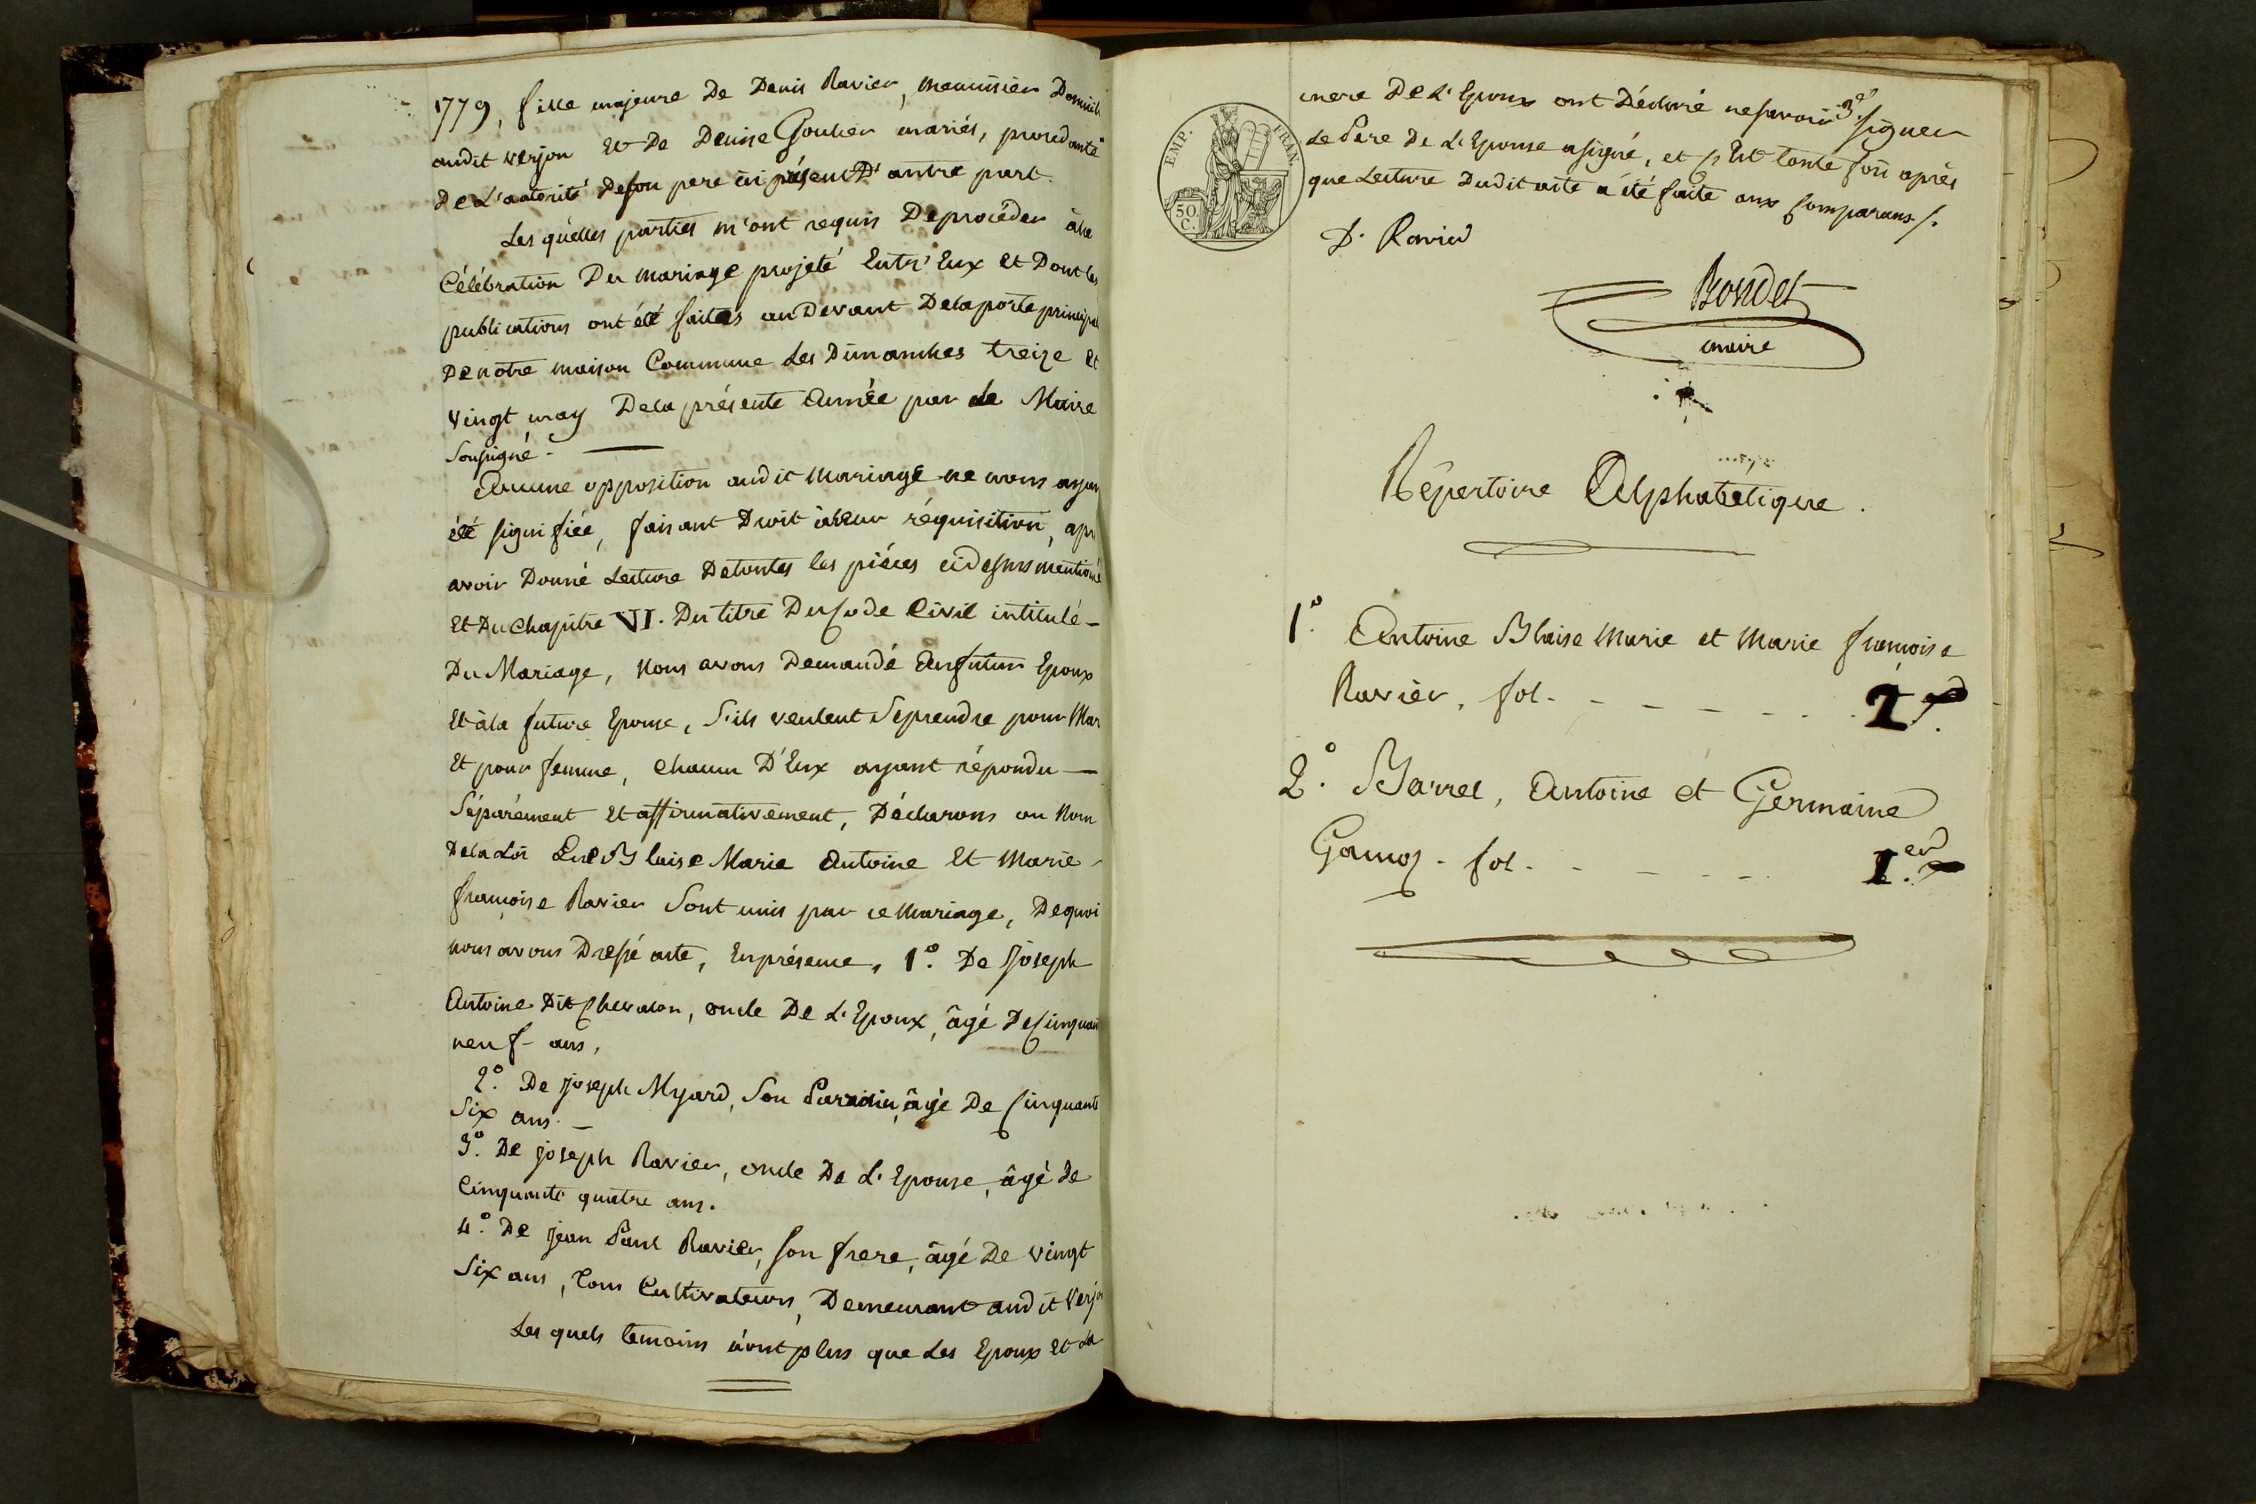 1779, fille majeure De Denis Ravier, menuisier Domicili
audit verjon Et De Denise Goulier mariés, procedante
De L'autorité De son pere ici présent D'autre part
Les quélles parties m'ont requis De procéder à la
Célébration Du mariage projeté Entr'Eux Et Dont les
publications ont été faites au Devant De la porte principal
De notre maison Commune Les Dimanches treize Et
vingt may De la présente Année par le Maire
Soussigné.
Aucune opposition audit Mariage ne nous ayan
été signifiée, faisant Droit à leur réquisition, apr
avoir Donné Lecture De toutes les piéces ci dessus mentioné
Et Du Chapitre VI. Du titre Du Code Civil intitulé
Du Mariage, Nous avons Demandé Au futur Epoux
Et à la future Epouse, S'ils veulent Se prendre pour Mar
Et pour femme, chacun D'Eux ayant répondu
Séparément Et affirmativement, Déclarons au Nom
De la Loi Que Blaise Marie Antoine Et Marie
françoise Ravier Sont unis par ce Mariage, De quoi
nous avons Dressé acte, En présence, 1°. De Joseph
Antoine Dit Chevalon, oncle De L'Epoux, âgé De Cinquan
neuf ans,
2°. De joseph Myard, Son Parain, âgé De Cinquante
Six ans.
3°. De joseph Ravier, oncle De L'Epouse, âgé De
Cinquante quatre ans.
4°. De jean Paul Ravier, son frere, âgé De vingt
Six ans, Tous Cultivateurs, Demeurant audit Verjon
Les quels temoins n'ont plus que Les Epoux Et La
3e
mere De L'Epoux ont Déclaré ne savoir signer
Le Pere De L'Epouse a signé, et C'Est toute fois après
que Lecture Dudit acte a été faite aux Comparans /.
EMP. FRAN.
50 C.
D. Ravier
Bondet
maire
Répertoire Alphabétique.
1°. Antoine Blaise Marie et Marie françoise
Ravier, fol. 2
2°. Barrel, Antoine et Germaine
fol. 1.er